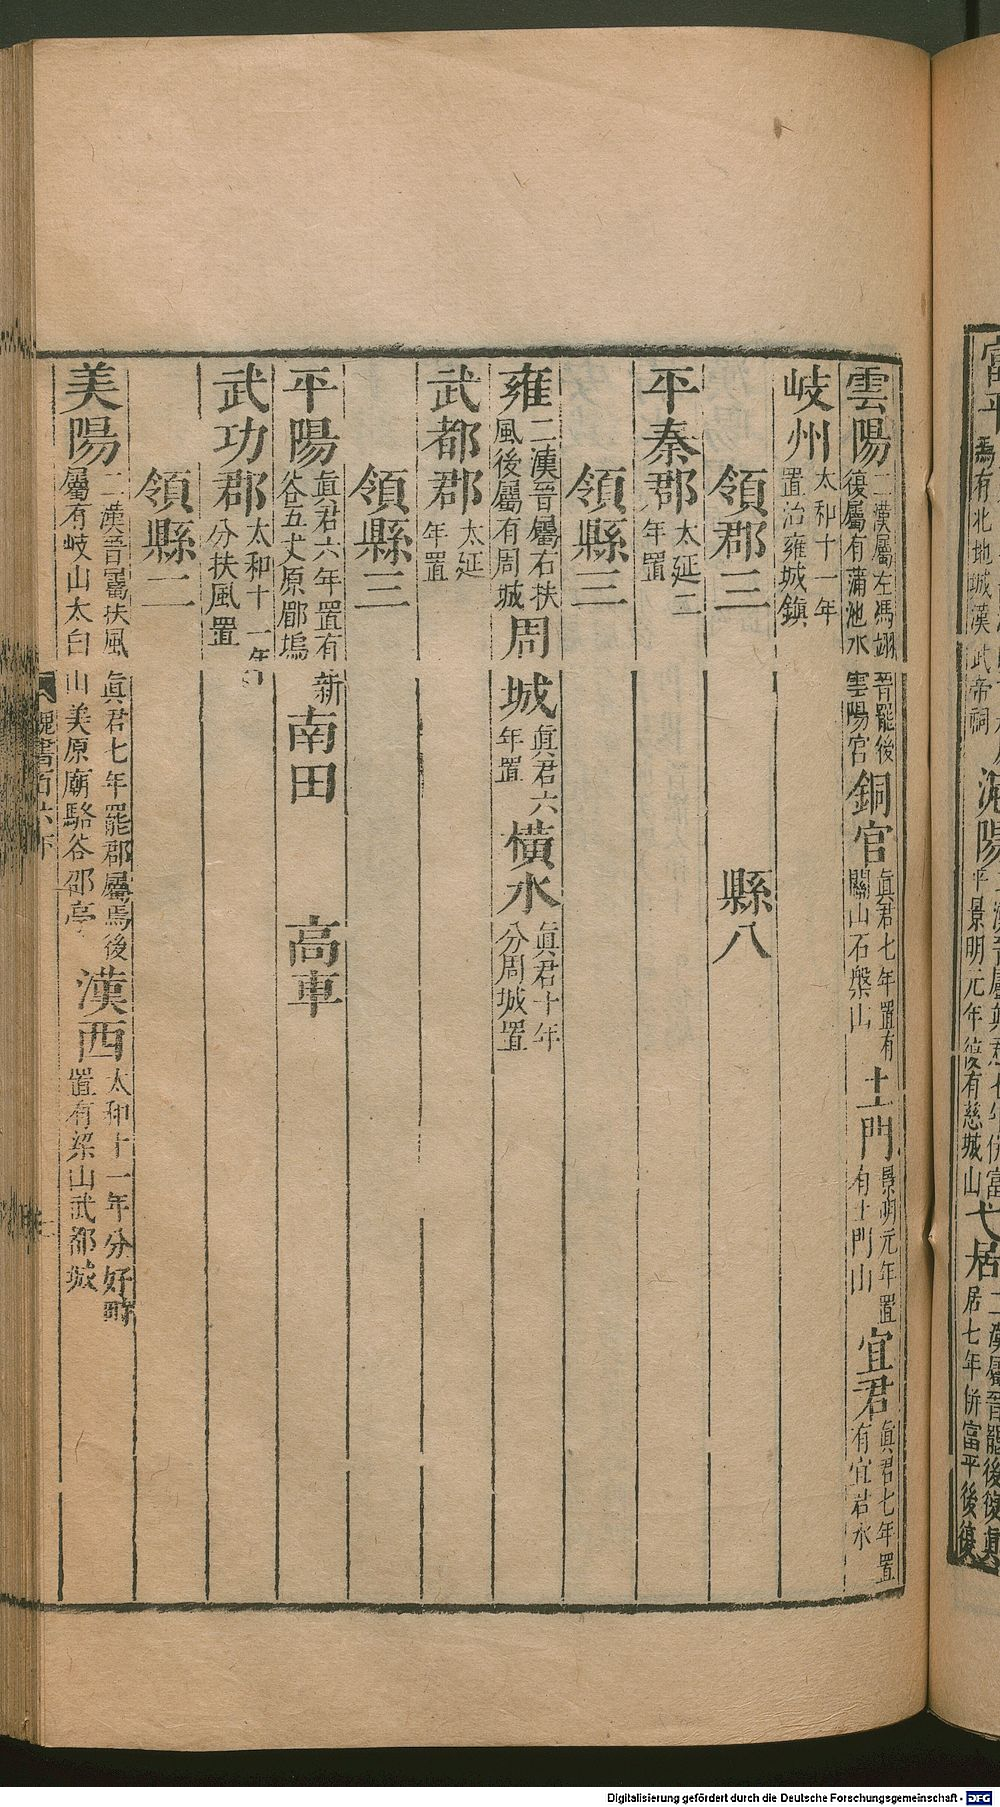 雲陽二漢屬左馮翊晉罷後復屬有蒲池水雲陽宮銅官眞君七年置有關山石槃山土門景明元年置有土門山宜君眞君七年置有宜君水
岐州太和十一年置治雍城鎮
領郡三　縣八
平秦郡太延二年置
領縣三
雍二漢晉屬右扶風後屬有周城周城眞君六年置橫水眞君十年分周城置
武都郡太延年置
領縣三
平陽眞君六年置有新谷五丈原郿塢南田　高車
武功郡太和十一年分扶風置
領縣二
美陽二漢晉屬扶風眞君七年罷郡屬焉後屬有岐山太白山美原廟駱谷邵亭漢西太和十一年分好畤置有梁山武都城
魏書百六下
Digitalisierung gefördert durch die Deutsche Forschungsgemeinschaft - DFG